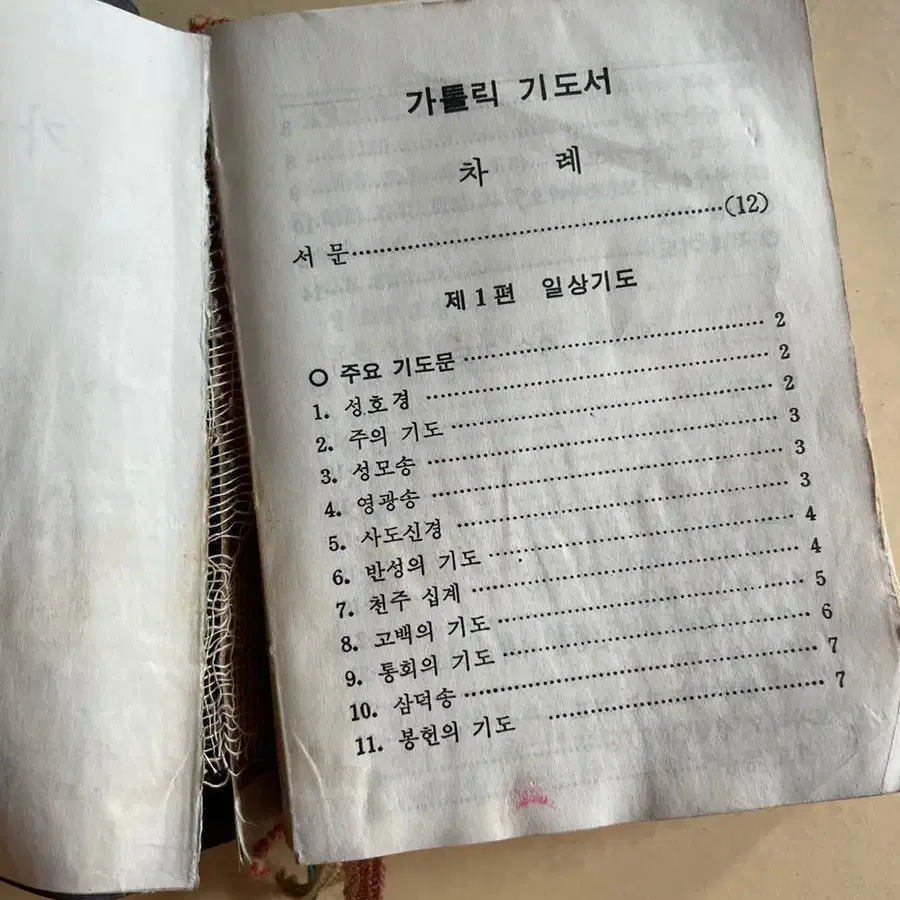 가톨릭 기도서
차 례
서 문……………………………………(12)
제 1 편 일상기도
○ 주요 기도문……………………………… 2
1. 성호경 ……………………………… 2
2. 주의 기도 ……………………………… 2
3. 성모송 ……………………………… 3
4. 영광송 ……………………………… 3
5. 사도신경 ……………………………… 3
6. 반성의 기도 ……………………………… 4
7. 천주 십계 ……………………………… 4
8. 고백의 기도 ……………………………… 5
9. 통회의 기도 ……………………………… 6
10. 삼덕송 ……………………………… 7
11. 봉헌의 기도 ……………………………… 7